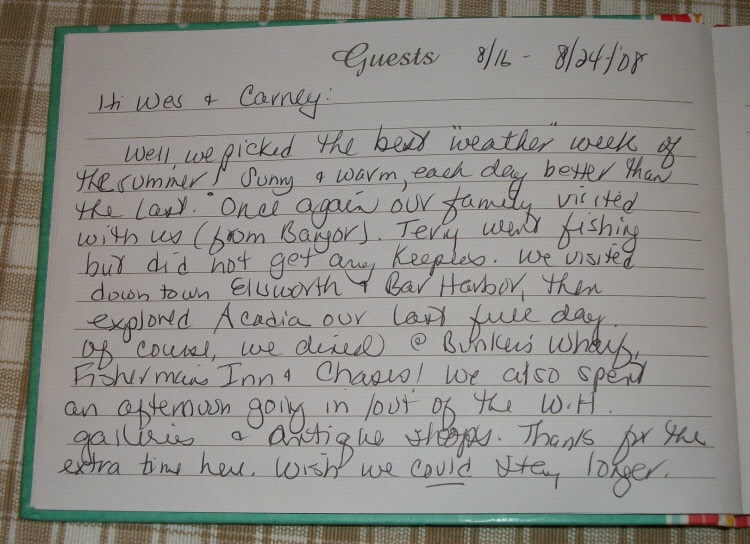 Guests 8/16 - 8/24/08
Hi Wes & Carney:
Well, we picked the best "weather" week of
the summer! Sunny & warm, each day better than
the last. Once again our family visited
with us (from Bangor). Terry went fishing
but did not get any keepers. We visited
downtown Ellsworth & Bar Harbor, then
explored Acadia our last full day.
Of course, we dined @ Bunker's Wharf,
Fisherman's Inn & Chases! We also spent
an afternoon going in/out of the W.H.
galleries & antique shops. Thanks for the
extra time here. Wish we could stay longer.